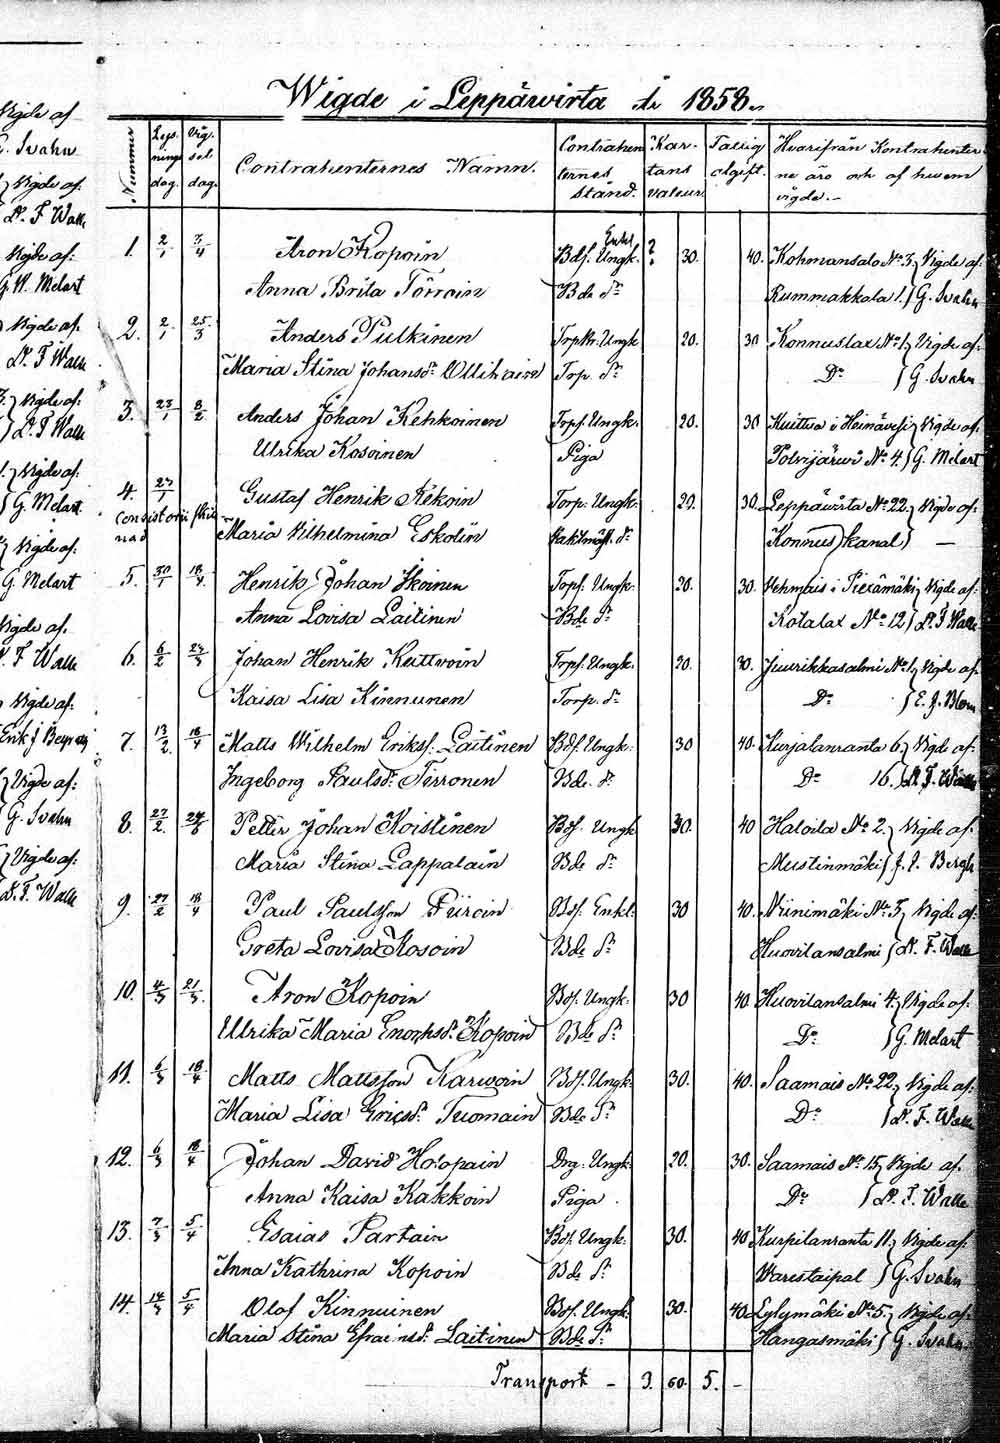 Wigde i Leppäwirta År 1858
Nummer Lysningsdag. Vigseldag. Contrahenternes Namn. Contrahenternes stånd. Kartans valeur Fattig afgift. Hvarifrån Kontrahenterne äro och af hvem vigde.
1. 2/1 3/4 Aron Kopoin Bds. Enkl. Ungk. ? 30. 40. Kohmansalo No 3. Vigde af
Anna Brita Törroin Bde dr Rummakkala 1. G. Svahn
2. 2/1 25/3 Anders Pulkinen Trpkr. Ungk 20. 30 Konnuslax No 1. Vigde af:
Maria Stina Johansdr Ollikainen Trp. dr Do G. Svahn
3. 23/1 8/2 Anders Johan Kehkoinen Trps. Ungk. 20. 30 Kuittua i Heinävesi Vigde af:
Ulrika Kosoinen Piga Polvijärwi No 4. G. Melart
4. 27/1 Gustaf Henrik Kekoin Torp. Ungk. 20. 30. Leppävirta No 22. Vigde af:
Consistorii skilnad Maria Vilhelmina Eskolin dr Konnus kanal —
5. 30/1 18/4 Henrik Johan Ikoinen Torps. Ungk. 20. 30. Vehmais i Piexämäki Vigde af:
Anna Lovisa Laitinen Bde dr Kotalax No 12 D. F. Walle
6. 6/2 27/3 Johan Henrik Keittwoin Trps. Ungk. 20. 30. Juurikkasalmi No 1. Vigde af:
Kaisa Lisa Kinnunen Torp. dr Do E. J. Blom
7. 13/2. 18/4 Matts Wilhelm Erikss. Laitinen Bds. Ungk: 30 40. Kurjalanranta 6. Vigde af:
Ingeborg Paulsdr Tirronen Bde. dr Do 16. D. F. Walle
8. 27/2. Petter Johan Koistinen Bds. Ungk 30. 40 Halola No 2. Vigde af:
Maria Stina Lappalain Bde dr Mustinmäki J. J. Bergh
9. 27/2 18/4 Paul Paulsson Piiroin Bds. Enkl: 30 40. Niinimäki No 3. Vigde af:
Greta Lovisa Kosoin Bde dr Huovilansalmi D. F. Walle
10. 4/3 21/3. Aron Kopoin Bds. Ungk: 30 40. Huovilansalmi 4. Vigde af:
Ulrika Maria Enochsdr Kopoin Bde dr Do G. Melart
11. 6/3 18/4 Matts Mattsson Karwoin Bds. Ungk: 30. 40. Saamais No 22. Vigde af:
Maria Lisa Ericsdr Tuomain Bde dr Do D. F. Walle
12. 6/3 18/4 Johan David Holopain Drg. Ungk. 20. 30. Saamais No 15. Vigde af.
Anna Kaisa Kakkoin Piga. Do D. F. Walle
13. 7/3 5/4 Esaias Partain Bds. Ungk. 30. 40 Kurpilanranta 11. Vigde af:
Anna Kathrina Kopoin Bde dr Varistaipal G. Svahn
14. 14/3 5/4 Olof Kinnuinen Bds. Ungk. 30. 40 Lylymäki No 5. Vigde af:
Maria Stina Efraimsdr Laitinen Bde dr Hangasmäki G. Svahn
Transport - 3. 60. 5. -